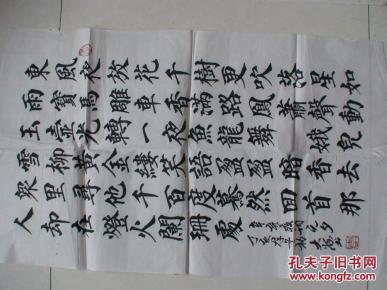 東風夜放花千樹更吹落星如
雨寶馬雕車香滿路鳳簫聲動
玉壺光轉一夜魚龍舞娥兒
雪柳黃金縷笑語盈盈暗香去
眾里尋他千百度驀然回首那
人却在燈火闌珊處
元夕